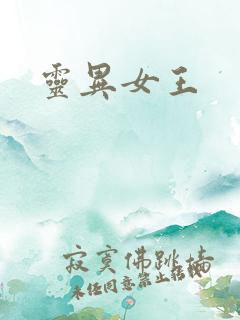 靈異女王
寂寞佛跳墻
未经同意禁止转载